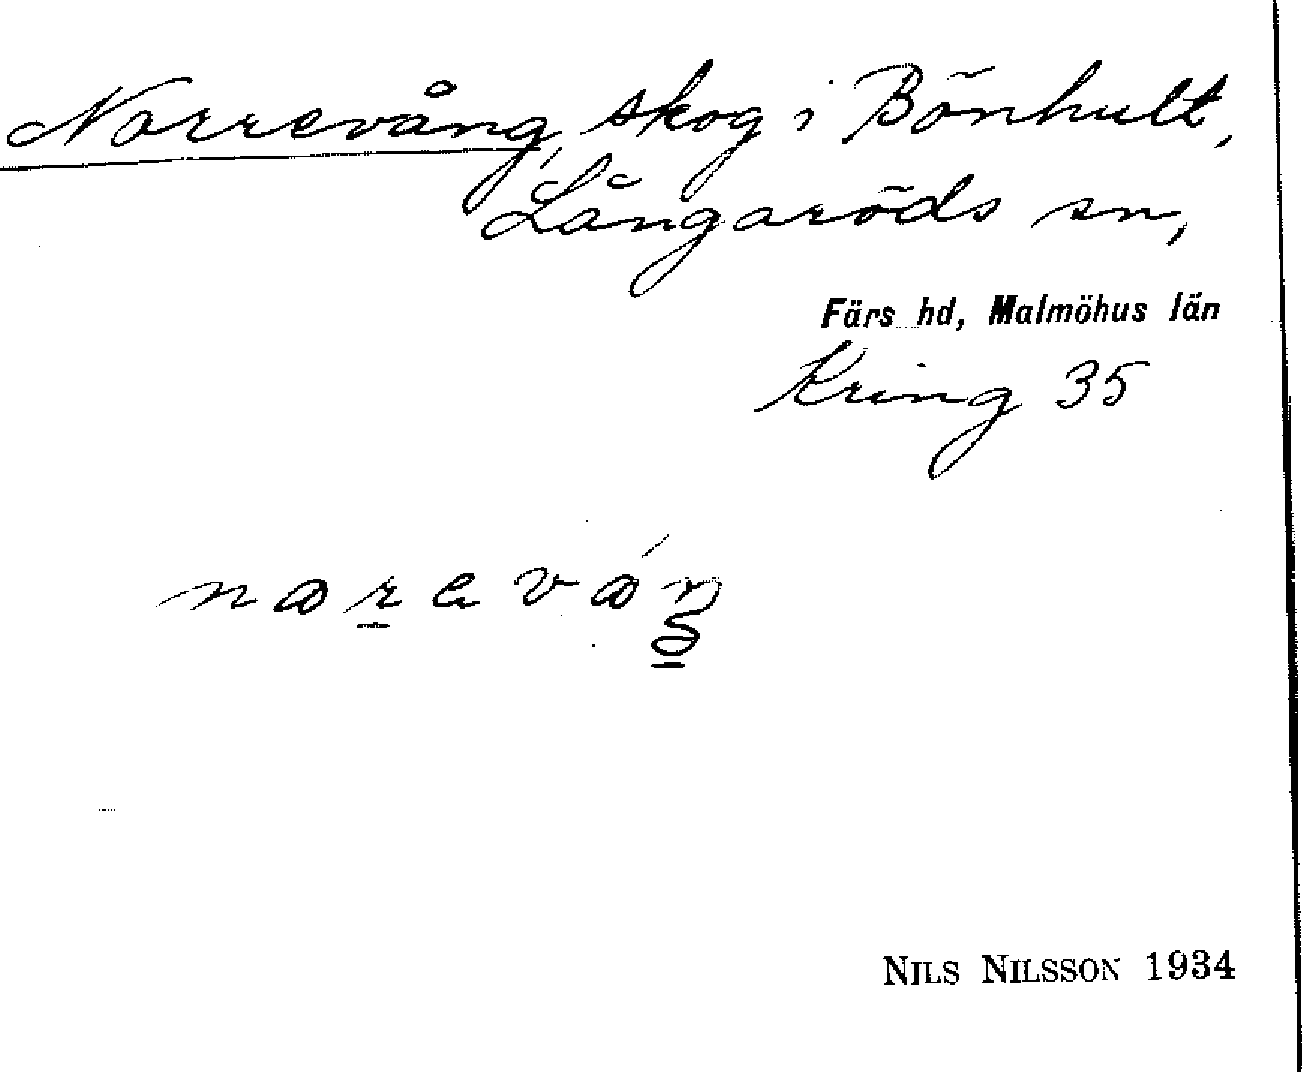 Norrevång, skog i Bönhult,
Långaröds sn,
Färs hd, Malmöhus län
Kring 35
NILS NILSSON 1934